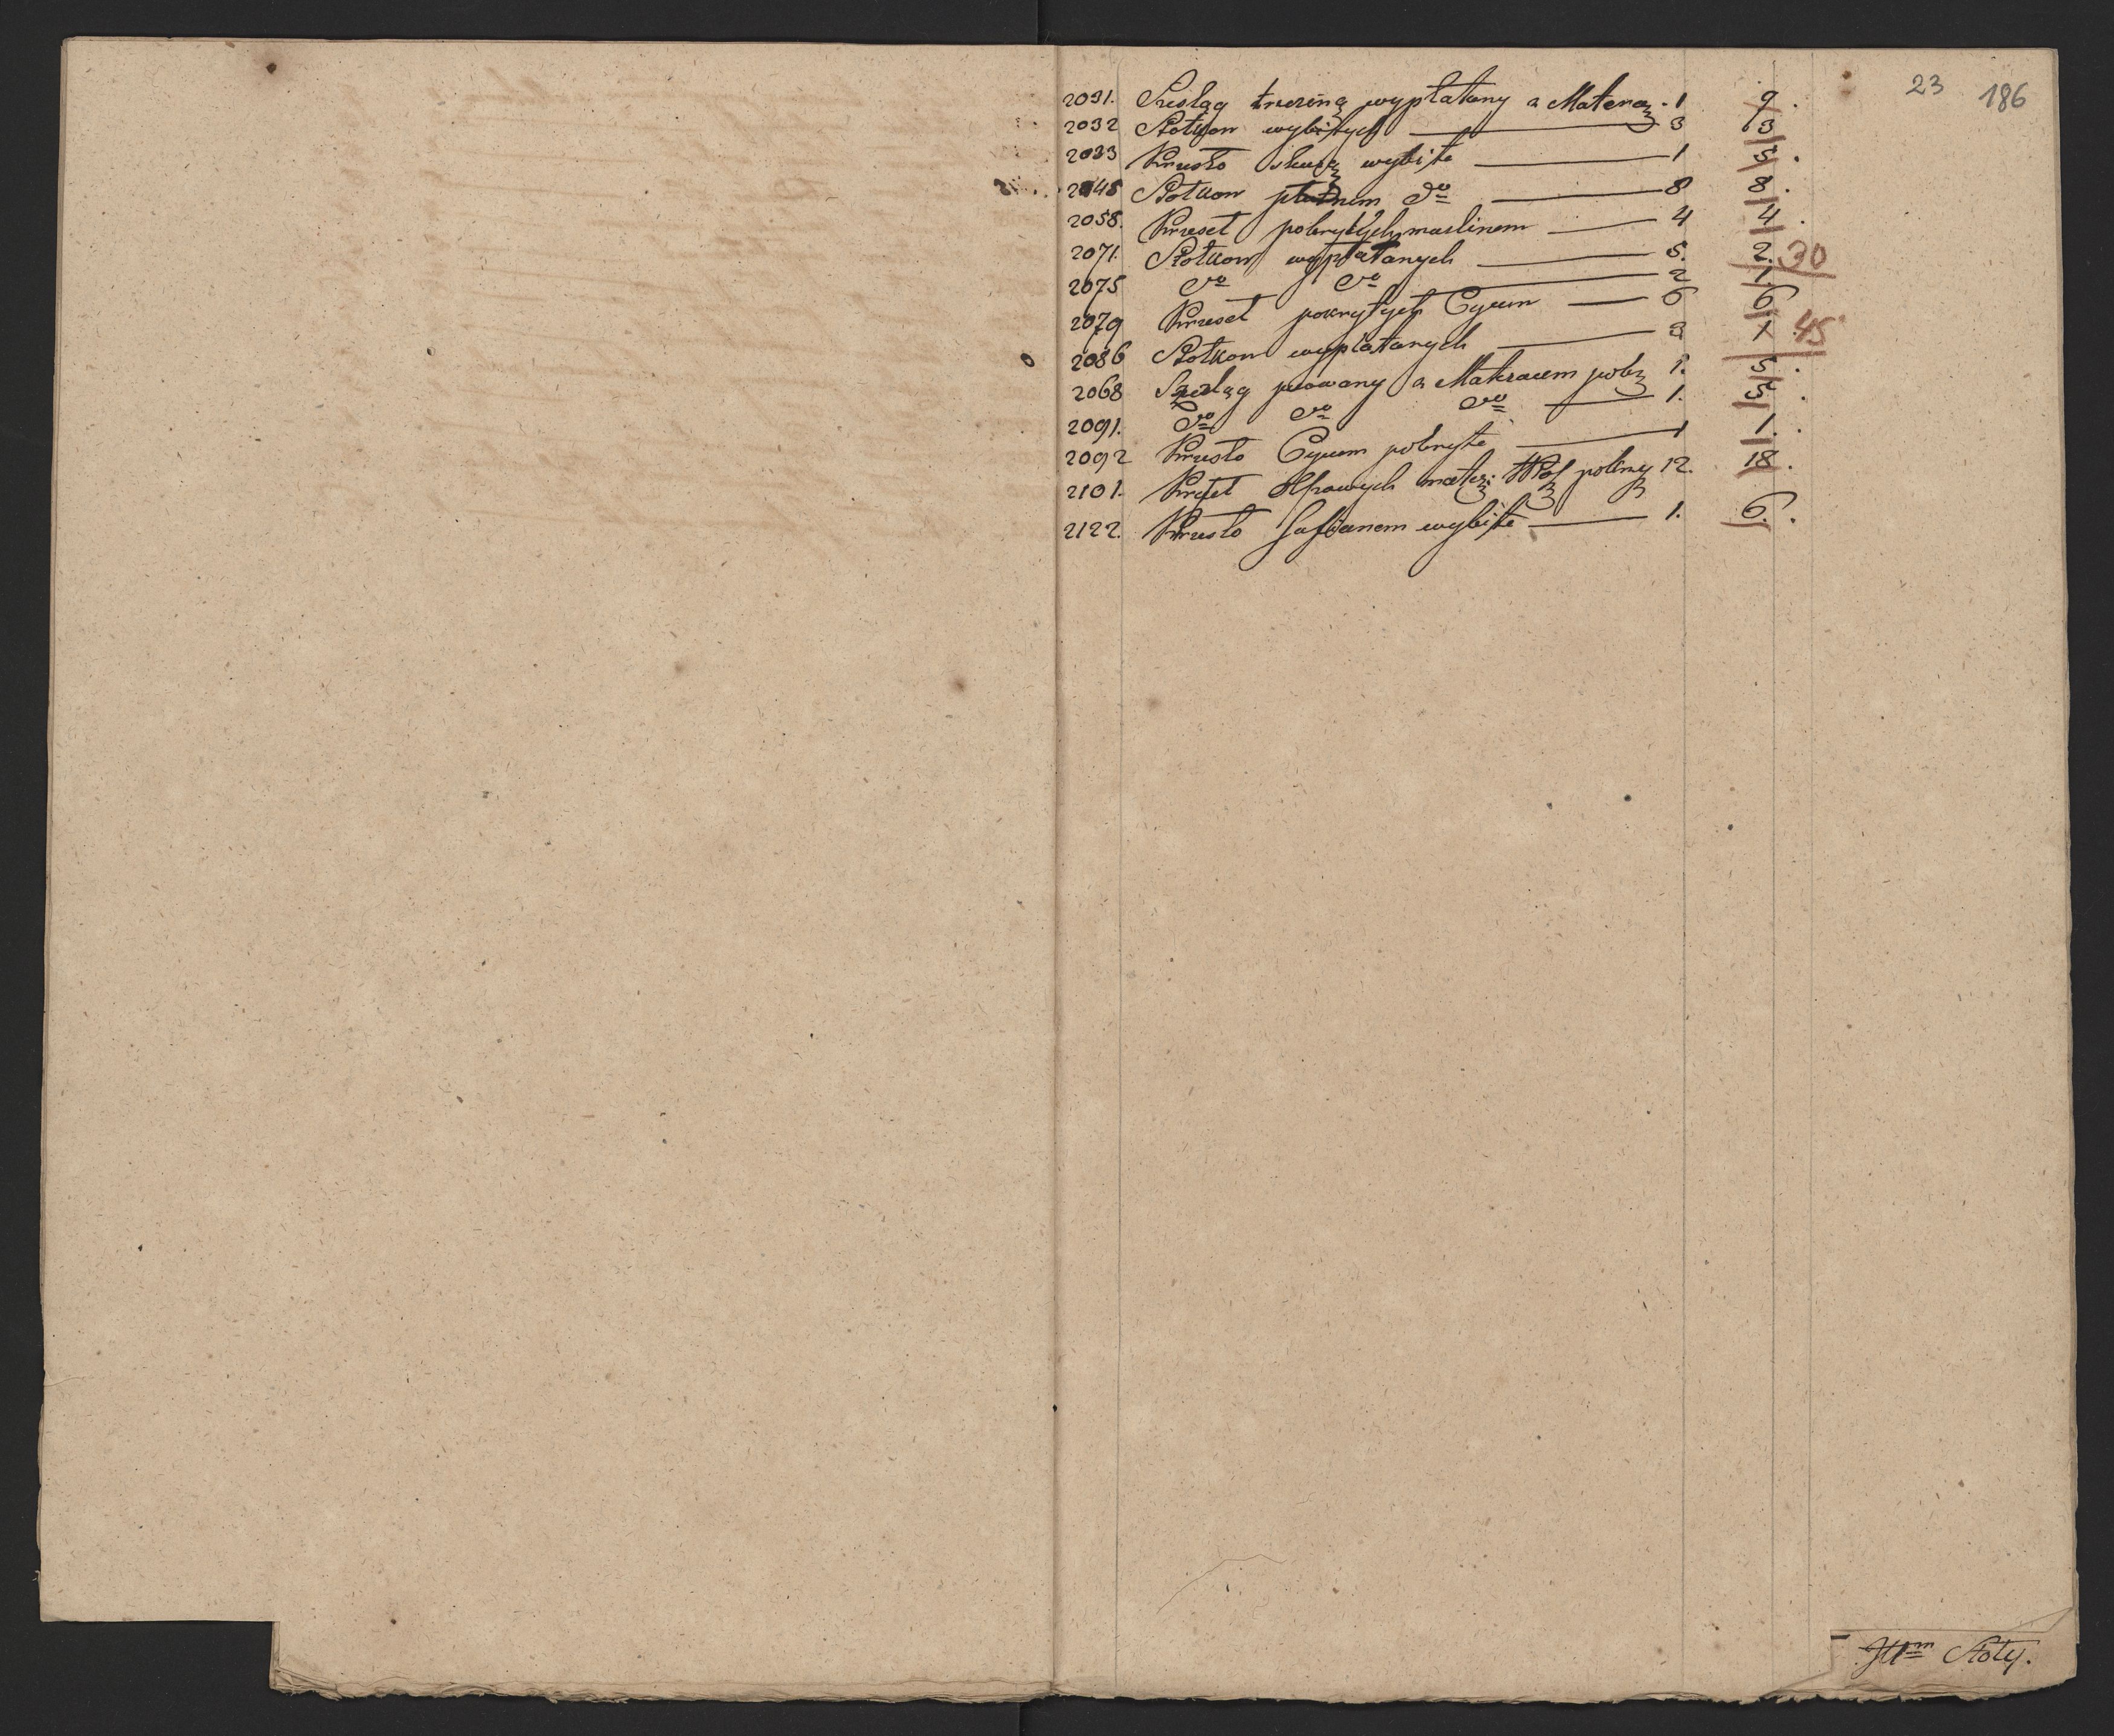 23 186
2031. Szesląg trzciną wyplatany z Materaz. 1 9.
2032 Stołkow wybitych 3 3
2033 Krzesło skurą wybite 1 5.
2045 Stołkow płutnem do 8 8.
2058. Krzeseł pokrytych muslinem 4 4.
2071. Stołkow wyplatanych 5. 2. 30
2075 do do 2 1.
2079 Krzeseł pokrytych Cycem 6 6
2086 Stołkow wyplatanych 3 1. 45
2068 Szezląg pasowany z Materacem pokr 1. 5.
2091. do do do 1. 5.
2092 Krzesło Cycem pokryte 1 1.
2101. Krzeseł mater: pokry 12. 18.
2122. Krzesło Safianem wybite 1. 6.
Stoły.